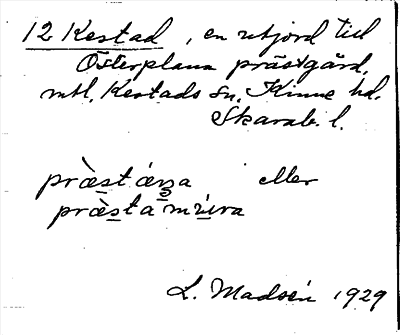 12 Kestad, en utjord till
Österplana prästgård,
mtl, Kestads sn, Kinne hd.
Skarab. l.
eller
L. Madsén 1929